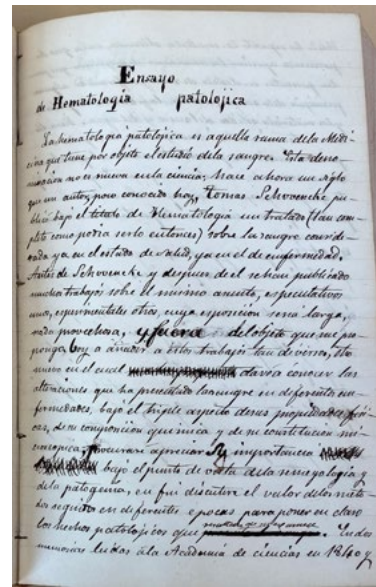 Ensayo
de Hematologia patolojica
La hematologia patolojica es aquella rama de la Medi-
cina que tiene por objeto el estudio de la sangre. Esta deno-
minacion no es nueva en la ciencia; hace ahora un siglo
que un autor, poco conocido hoy, Tomas Schwencke, pu-
blicó bajo el titulo de Hematologia un tratado (tan com-
pleto como podia serlo entonces) sobre la sangre conside-
rada ya en el estado de salud, ya en el de enfermedad.
Antes de Schwencke y despues de el se han publicado
muchos trabajos sobre el mismo asunto, especulativos
unos, esperimentales otros, cuya esposicion seria larga,
nada provechosa, y fuera del objeto que me pro-
pongo. Voy a añadir a estos trabajos tan diversos, otro
nuevo en el cual daré a conocer las
alteraciones que ha presentado la sangre en diferentes en-
fermedades, bajo el triple aspecto de sus propiedades fisi-
cas, de su composicion quimica y de su constitucion mi-
croscopica; procurare apreciar su importancia
bajo el punto de vista de la semeyologia y
de la patogenia; en fin discutire el valor de los meto-
dos seguidos en diferentes epocas para poner en claro
los hechos patologicos que En dos
memorias leidas á la Academia de ciencias en 1840 y